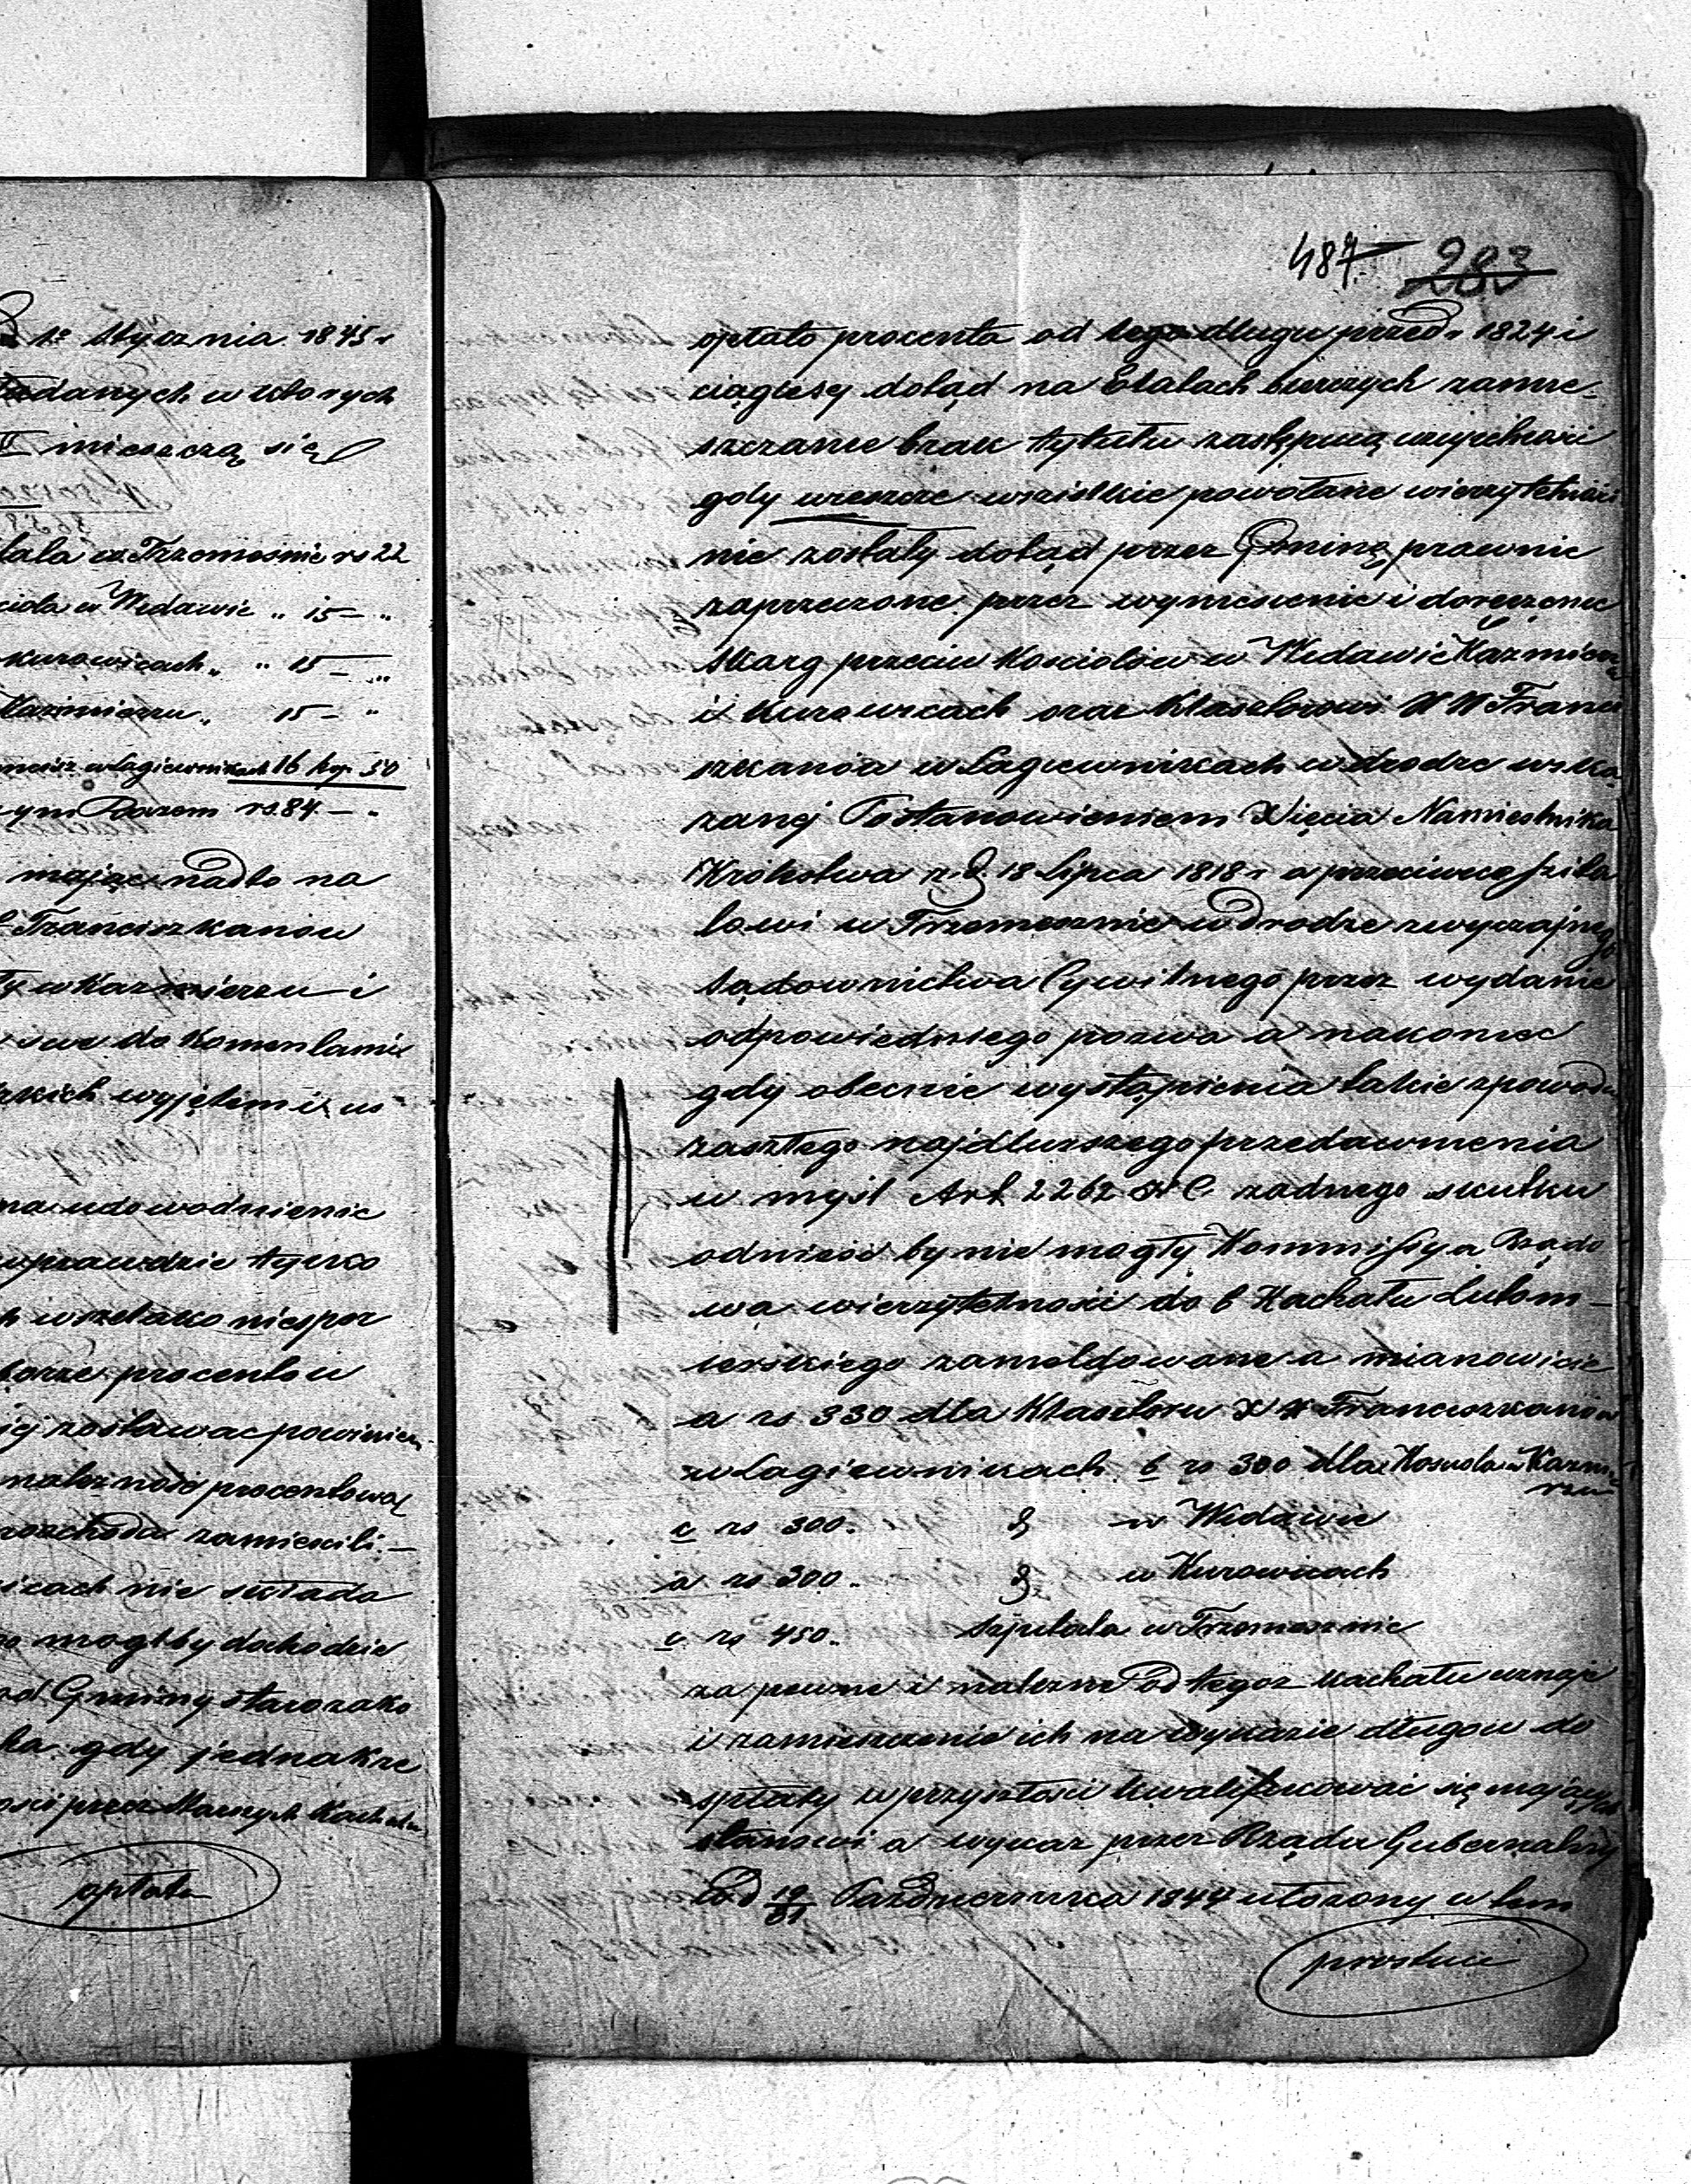 1º Stycznia 1845 r
danych w których
II mieszczą się
tala w Trzemesnie rs 22
ciola w Widawie „ 15 – „
kurowicach „ „ 15 – „
Kazimierzu „ 15 – „
w Lagiewnikach 16 kop 50
ym Razem rs. 84. – „
mając nadto na
Franciszkanow
ty w Kazimierzu i
swe do Komentami
wyjętemi us
na udowodnienie
wprawdzie tylko
wszelako niespor
borze procentow
zostawac powinien
należność procentową
rozchoda zamiescili. –
icach nie sklada
mogłby dochodzic
od Gminy starozako
ka gdy jednakze
osci przez Starszych Kachalu
opłata
487. 283
opłato procenta od tego długu przed r 1824 i
ciąglesy dotąd na Etatach bierzych zamie-
szczanie brak tytułu zastępują
gdy wreszcie wszistkie powołane wierzytelnosci
nie zostały dotąd przez Gminę prawnie
zaprzeczone przez wyniesienie i doręczenie
skarg przeciw Kosciolow w Widawie Kazmierzu
i Kurowicach oraz Klasztorowi Franci
szkanow w Lagiewnikach w drodze wska
zanej Postanowieniem Xięcia Namiestnika
Królestwa z d. 18 Lipca 1818 r a przeciwco Szita
lowi w Trzemesznie w drodze zwyczajnego
sądownictwa Cywilnego przez wydanie
odpowiedniego pozwu a nakoniec
gdy obecnie wystąpienia takie z powodu
zaszłego najdłuszszego przedawnienia
w mysl Art 2262 K C. zadnego skutku
odnieść by nie mogły Kommissya Rządo
wa wierzytelności do b Kachału Lutom-
ierskiego zameldowane a mianowicie
a rs 330 dla Klasztoru X X Franciszkanów
w Lagiewnikach. b rs 300 dla Kosciola w Kazmie
rzu
c rs 300. „ w Widawie
d rs 300. „ w Kurowicach
e rs 450. Szpitala w Trzemesznie
za pewne i należne od tegoz kachału uznaje
i zamieszczenie ich na wykazie długow do
spłaty w przyszłosci kwalifikować się mających
stanowi a wykaz przez Rządu Gubernialny
pod 19/31 Pazdziernika 1844 ułozony w tem